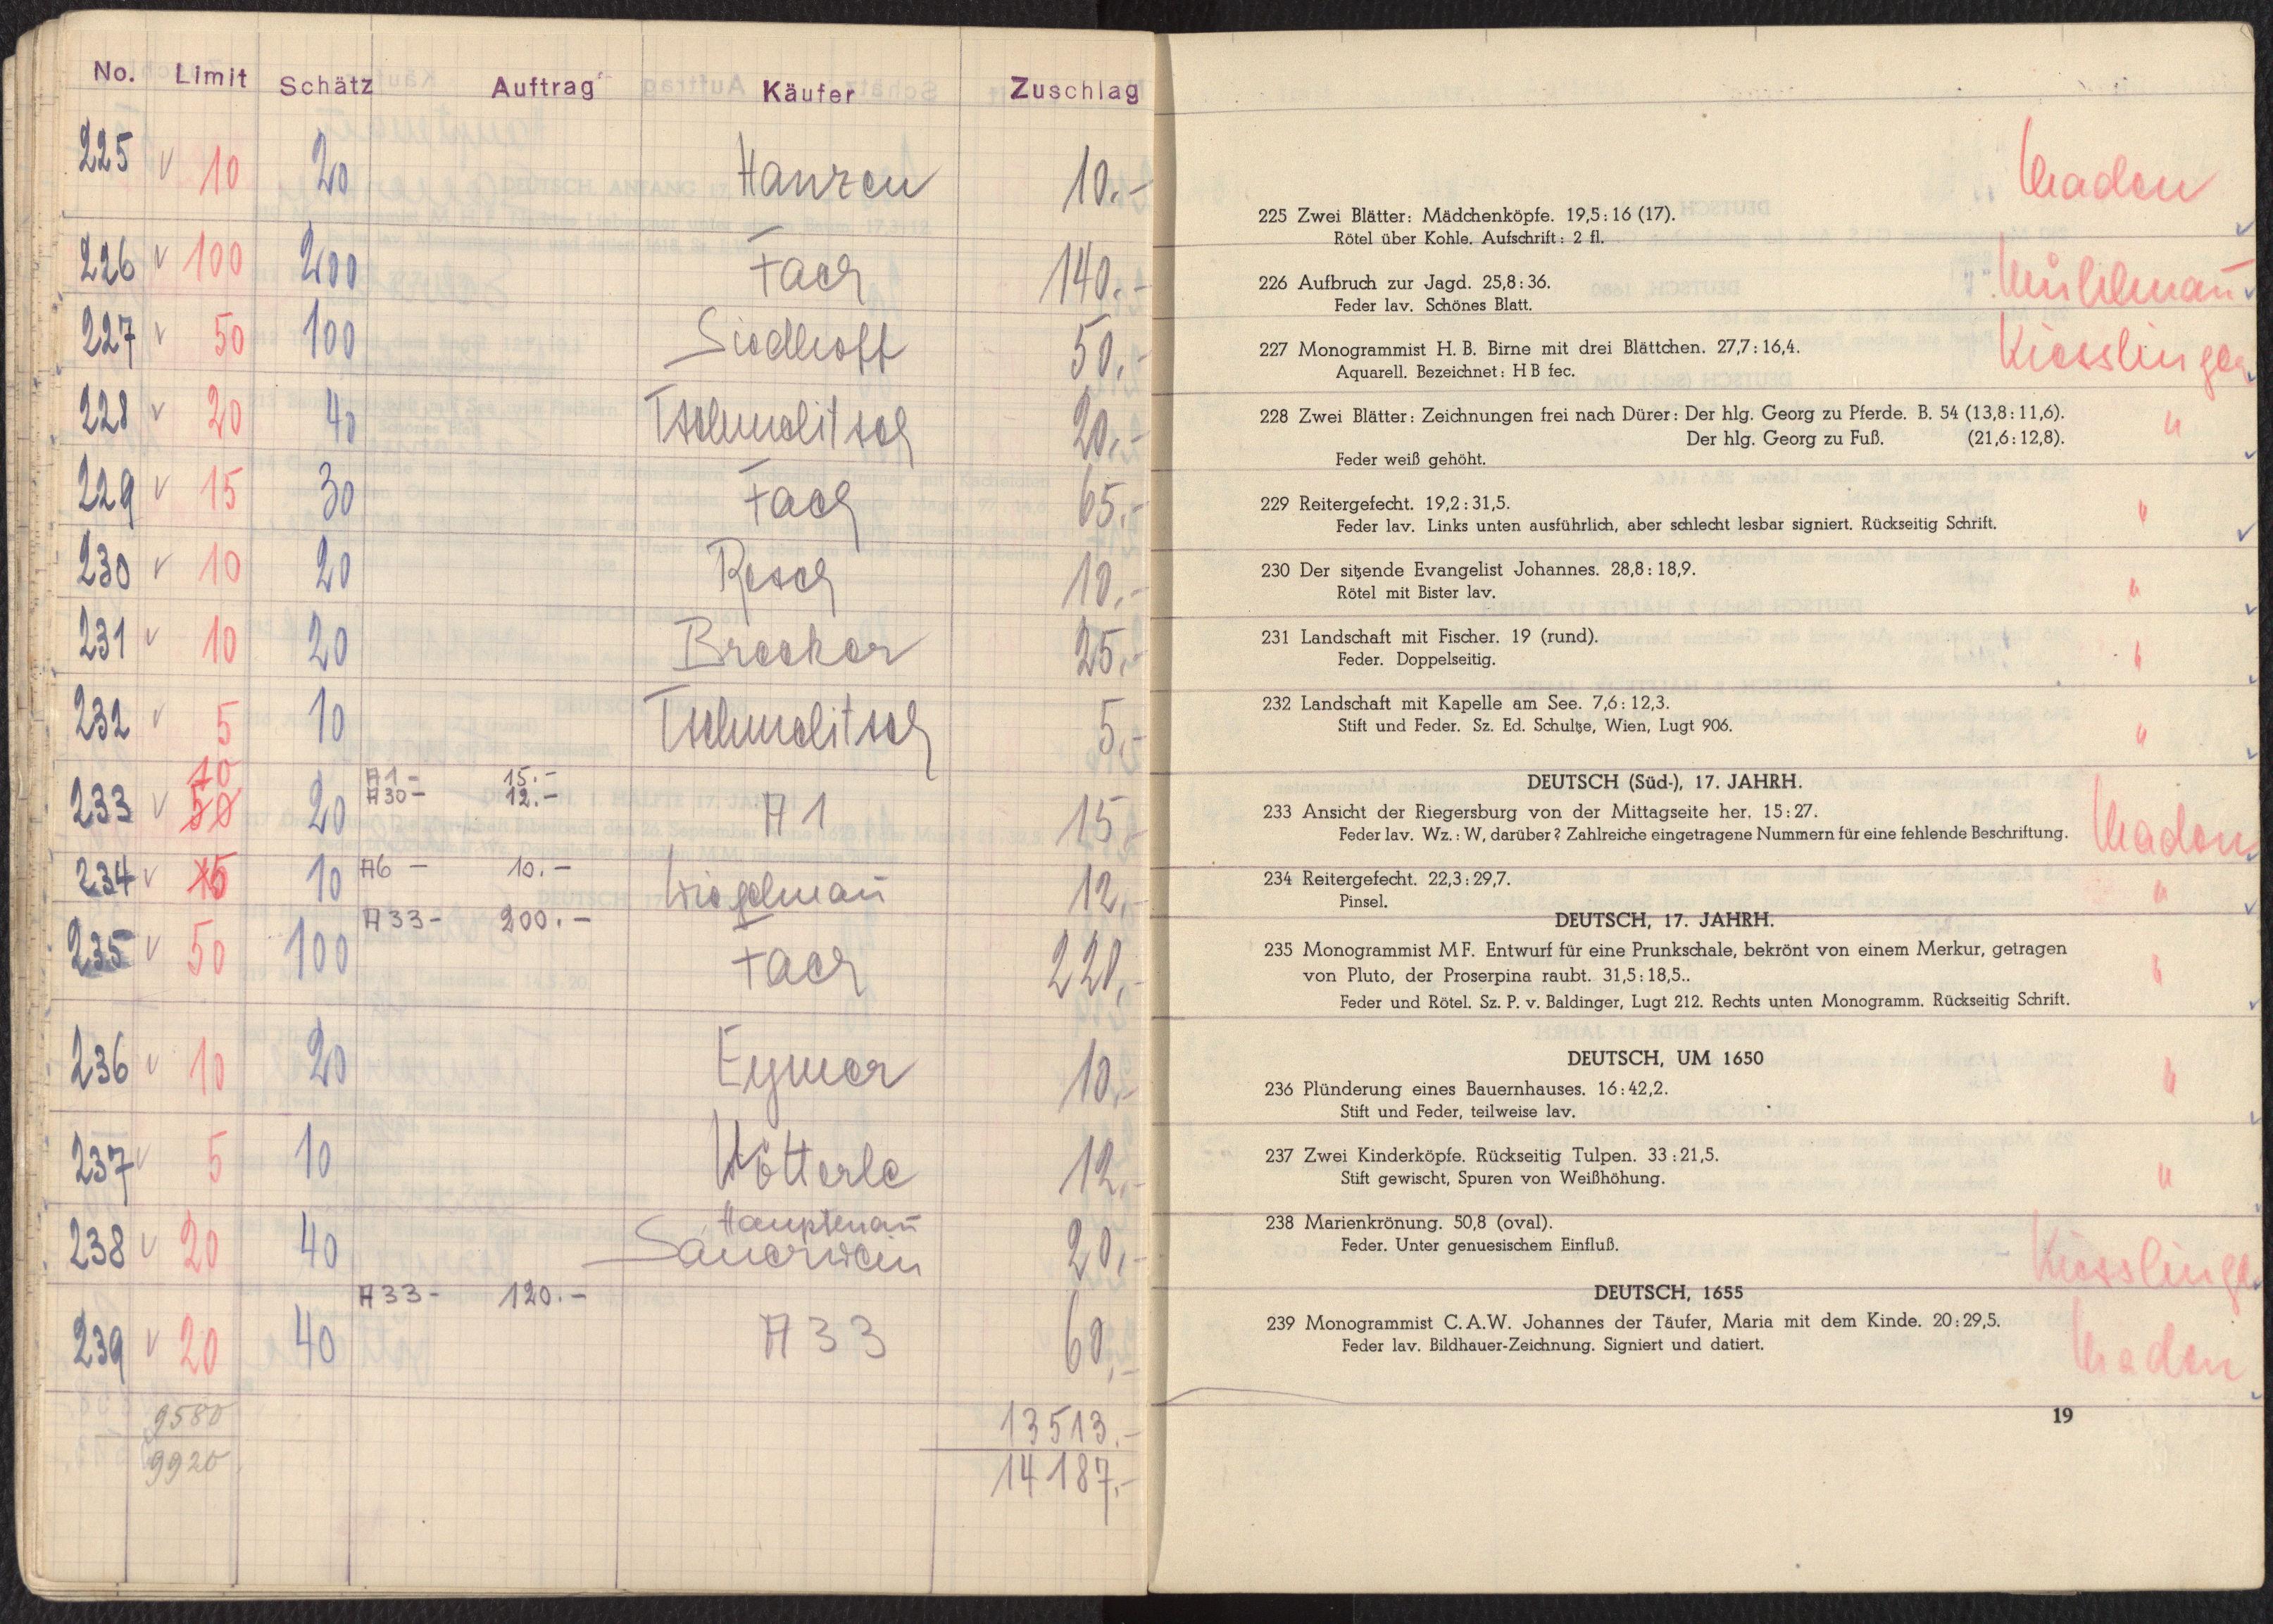 No. Limit Schätz Auftrag Käufer Zuschlag
225 v 10 20 Hanzen 10.-
226 v 100 200 Fach 140.-
227 v 50 100 Siedhoff 50.-
228 v 20 40 20.-
229 v 15 30 Fach 65.-
230 v 10 20 Resch 10.-
231 v 10 20 Brecker 25.-
232 v 5 10 5.-
10 A1 - 15.-
233 v 50 20 A30 - 12.- A 1 15.-
234 v 15 10 A6 - 10.- Wiegelmañ 12.-
A33 - 200.-
235 v 50 100 Fach 220.-
236 v 10 20 Eymer 10.-
237 v 5 10 Wötterle 12.-
Hauptmañ
238 v 20 40 Sauerwein 20.-
A33 - 120.-
239 v 20 40 A 33 60.-
9580 13513.-
9920 14187.-
Maden
225 Zwei Blätter: Mädchenköpfe. 19,5:16 (17).
Rötel über Kohle. Aufschrift: 2 fl.
226 Aufbruch zur Jagd. 25,8:36. Mühlmañ
Feder lav. Schönes Blatt.
227 Monogrammist H. B. Birne mit drei Blättchen. 27,7:16,4. Kiesslinger
Aquarell. Bezeichnet: H B fec.
228 Zwei Blätter: Zeichnungen frei nach Dürer: Der hlg. Georg zu Pferde. B. 54 (13,8:11,6). "
Der hlg. Georg zu Fuß. (21,6:12,8).
Feder weiß gehöht.
229 Reitergefecht. 19,2:31,5. "
Feder lav. Links unten ausführlich, aber schlecht lesbar signiert. Rückseitig Schrift.
230 Der sitzende Evangelist Johannes. 28,8:18,9. "
Rötel mit Bister lav.
231 Landschaft mit Fischer. 19 (rund). "
Feder. Doppelseitig.
232 Landschaft mit Kapelle am See. 7,6:12,3. "
Stift und Feder. Sz. Ed. Schultze, Wien, Lugt 906.
DEUTSCH (Süd-), 17. JAHRH.
233 Ansicht der Riegersburg von der Mittagseite her. 15:27. Maden
Feder lav. Wz.: W, darüber? Zahlreiche eingetragene Nummern für eine fehlende Beschriftung.
234 Reitergefecht. 22,3:29,7. "
Pinsel.
DEUTSCH, 17. JAHRH.
235 Monogrammist MF. Entwurf für eine Prunkschale, bekrönt von einem Merkur, getragen "
von Pluto, der Proserpina raubt. 31,5:18,5..
Feder und Rötel. Sz. P. v. Baldinger, Lugt 212. Rechts unten Monogramm. Rückseitig Schrift.
DEUTSCH, UM 1650
236 Plünderung eines Bauernhauses. 16:42,2. "
Stift und Feder, teilweise lav.
237 Zwei Kinderköpfe. Rückseitig Tulpen. 33:21,5. "
Stift gewischt, Spuren von Weißhöhung.
238 Marienkrönung. 50,8 (oval). Kiesslinger
Feder. Unter genuesischem Einfluß.
DEUTSCH, 1655
239 Monogrammist C.A.W. Johannes der Täufer, Maria mit dem Kinde. 20:29,5. Maden
Feder lav. Bildhauer-Zeichnung. Signiert und datiert.
19